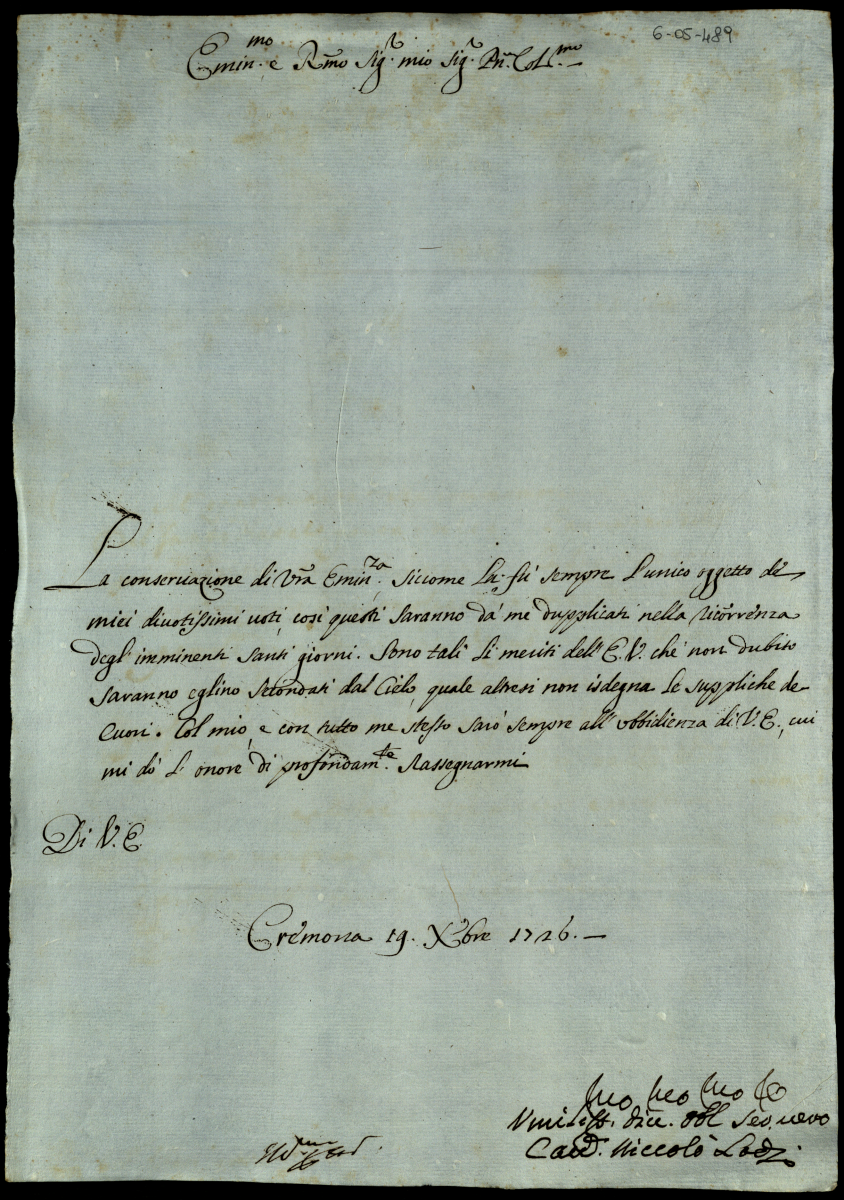 6-05-489
Emin.mo e Rmo Sig.r mio Sig.r Pn. Col.mo
La conseruazione di Vra Emin.za siccome La fù sempre l'unico oggetto de
miei diuotissimi uoti, così questi saranno da me dupplicati nella ricorrenza
degl'imminenti santi giorni. Sono tali li meriti dell'E.V. che non dubito
saranno eglino secondati dal Cielo, quale altresi non isdegna le suppliche de
Cuori. Col mio, e con tutto me stesso sarò sempre all'ubbidienza di V.E., cui
mi dò l'onore di profondam.te rassegnarmi
Di V.E.
Cremona 19. Xbre 1726.
mo mo mo
Umiliss. diu. obl. seo. uero
Cand. Niccolò Lodi